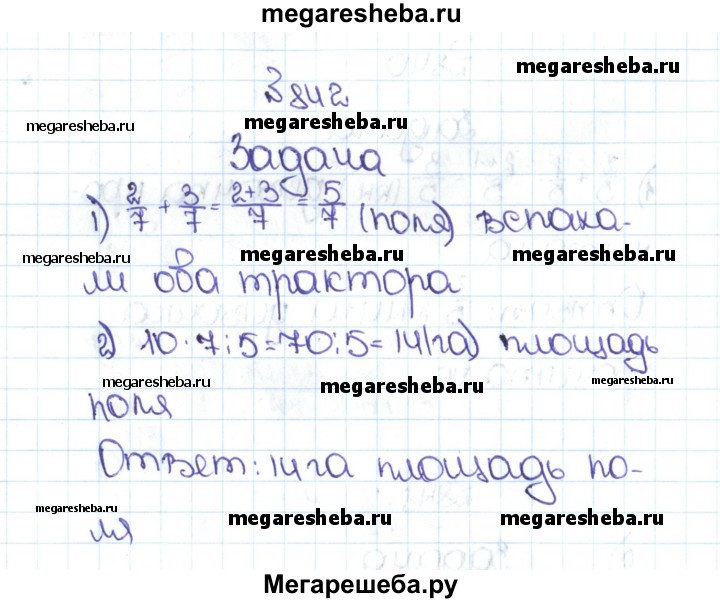 megaresheba.ru
megaresheba.ru
№842
megaresheba.ru megaresheba.ru
Задача
1) 2/7 + 3/7 = 2+3/7 = 5/7 (поля) вспаха-
megaresheba.ru megaresheba.ru megaresheba.ru
ли оба трактора
2) 10·7:5=70:5=14(га) площадь
megaresheba.ru megaresheba.ru megaresheba.ru
поля
Ответ: 14 га площадь по-
megaresheba.ru megaresheba.ru megaresheba.ru
ля
Мегарешеба.ру